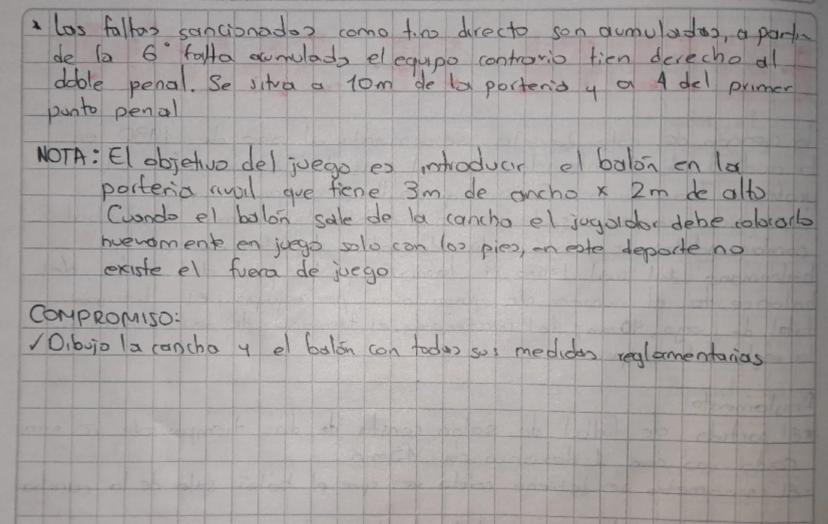 * Las faltas sancionadas como tiro directo son acumuladas, a partir
de la 6° falta acumulada el equipo contrario tien derecho al
doble penal. Se situa a 10m de la porteria y a 4 del primer
punto penal
NOTA: El objetivo del juego es introducir el balón en la
porteria rival que tiene 3m de ancho x 2m de alto
Cuando el balón sale de la cancha el jugador debe colocarlo
nuevamente en juego solo con los pies, en este deporte no
existe el fuera de juego
COMPROMISO:
✓Dibujo la cancha y el balón con todas sus medidas reglamentarias